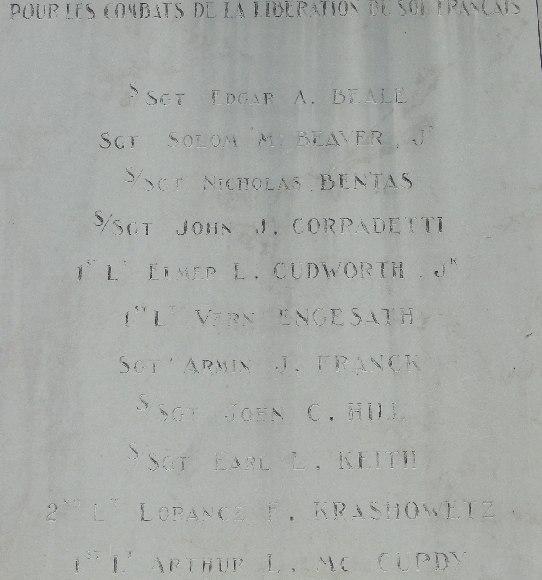 POUR LES COMBATS DE LA LIBERATION DU SOL FRANCAIS
S/SGT EDGAR A. BEALE
SGT SOLOM M. BEAVER, Jr
S/SGT NICHOLAS BENTAS
S/SGT JOHN J. CORRADETTI
1ST LT ELMER L. CUDWORTH, JR
1ST LT VERN ENGESATH
SGT ARMIN J. FRANCK
S/SGT JOHN C. HILL
S/SGT EARL L. KEITH
2ND LT LORANCE F. KRASHOWETZ
1ST LT ARTHUR L. MC CURDY